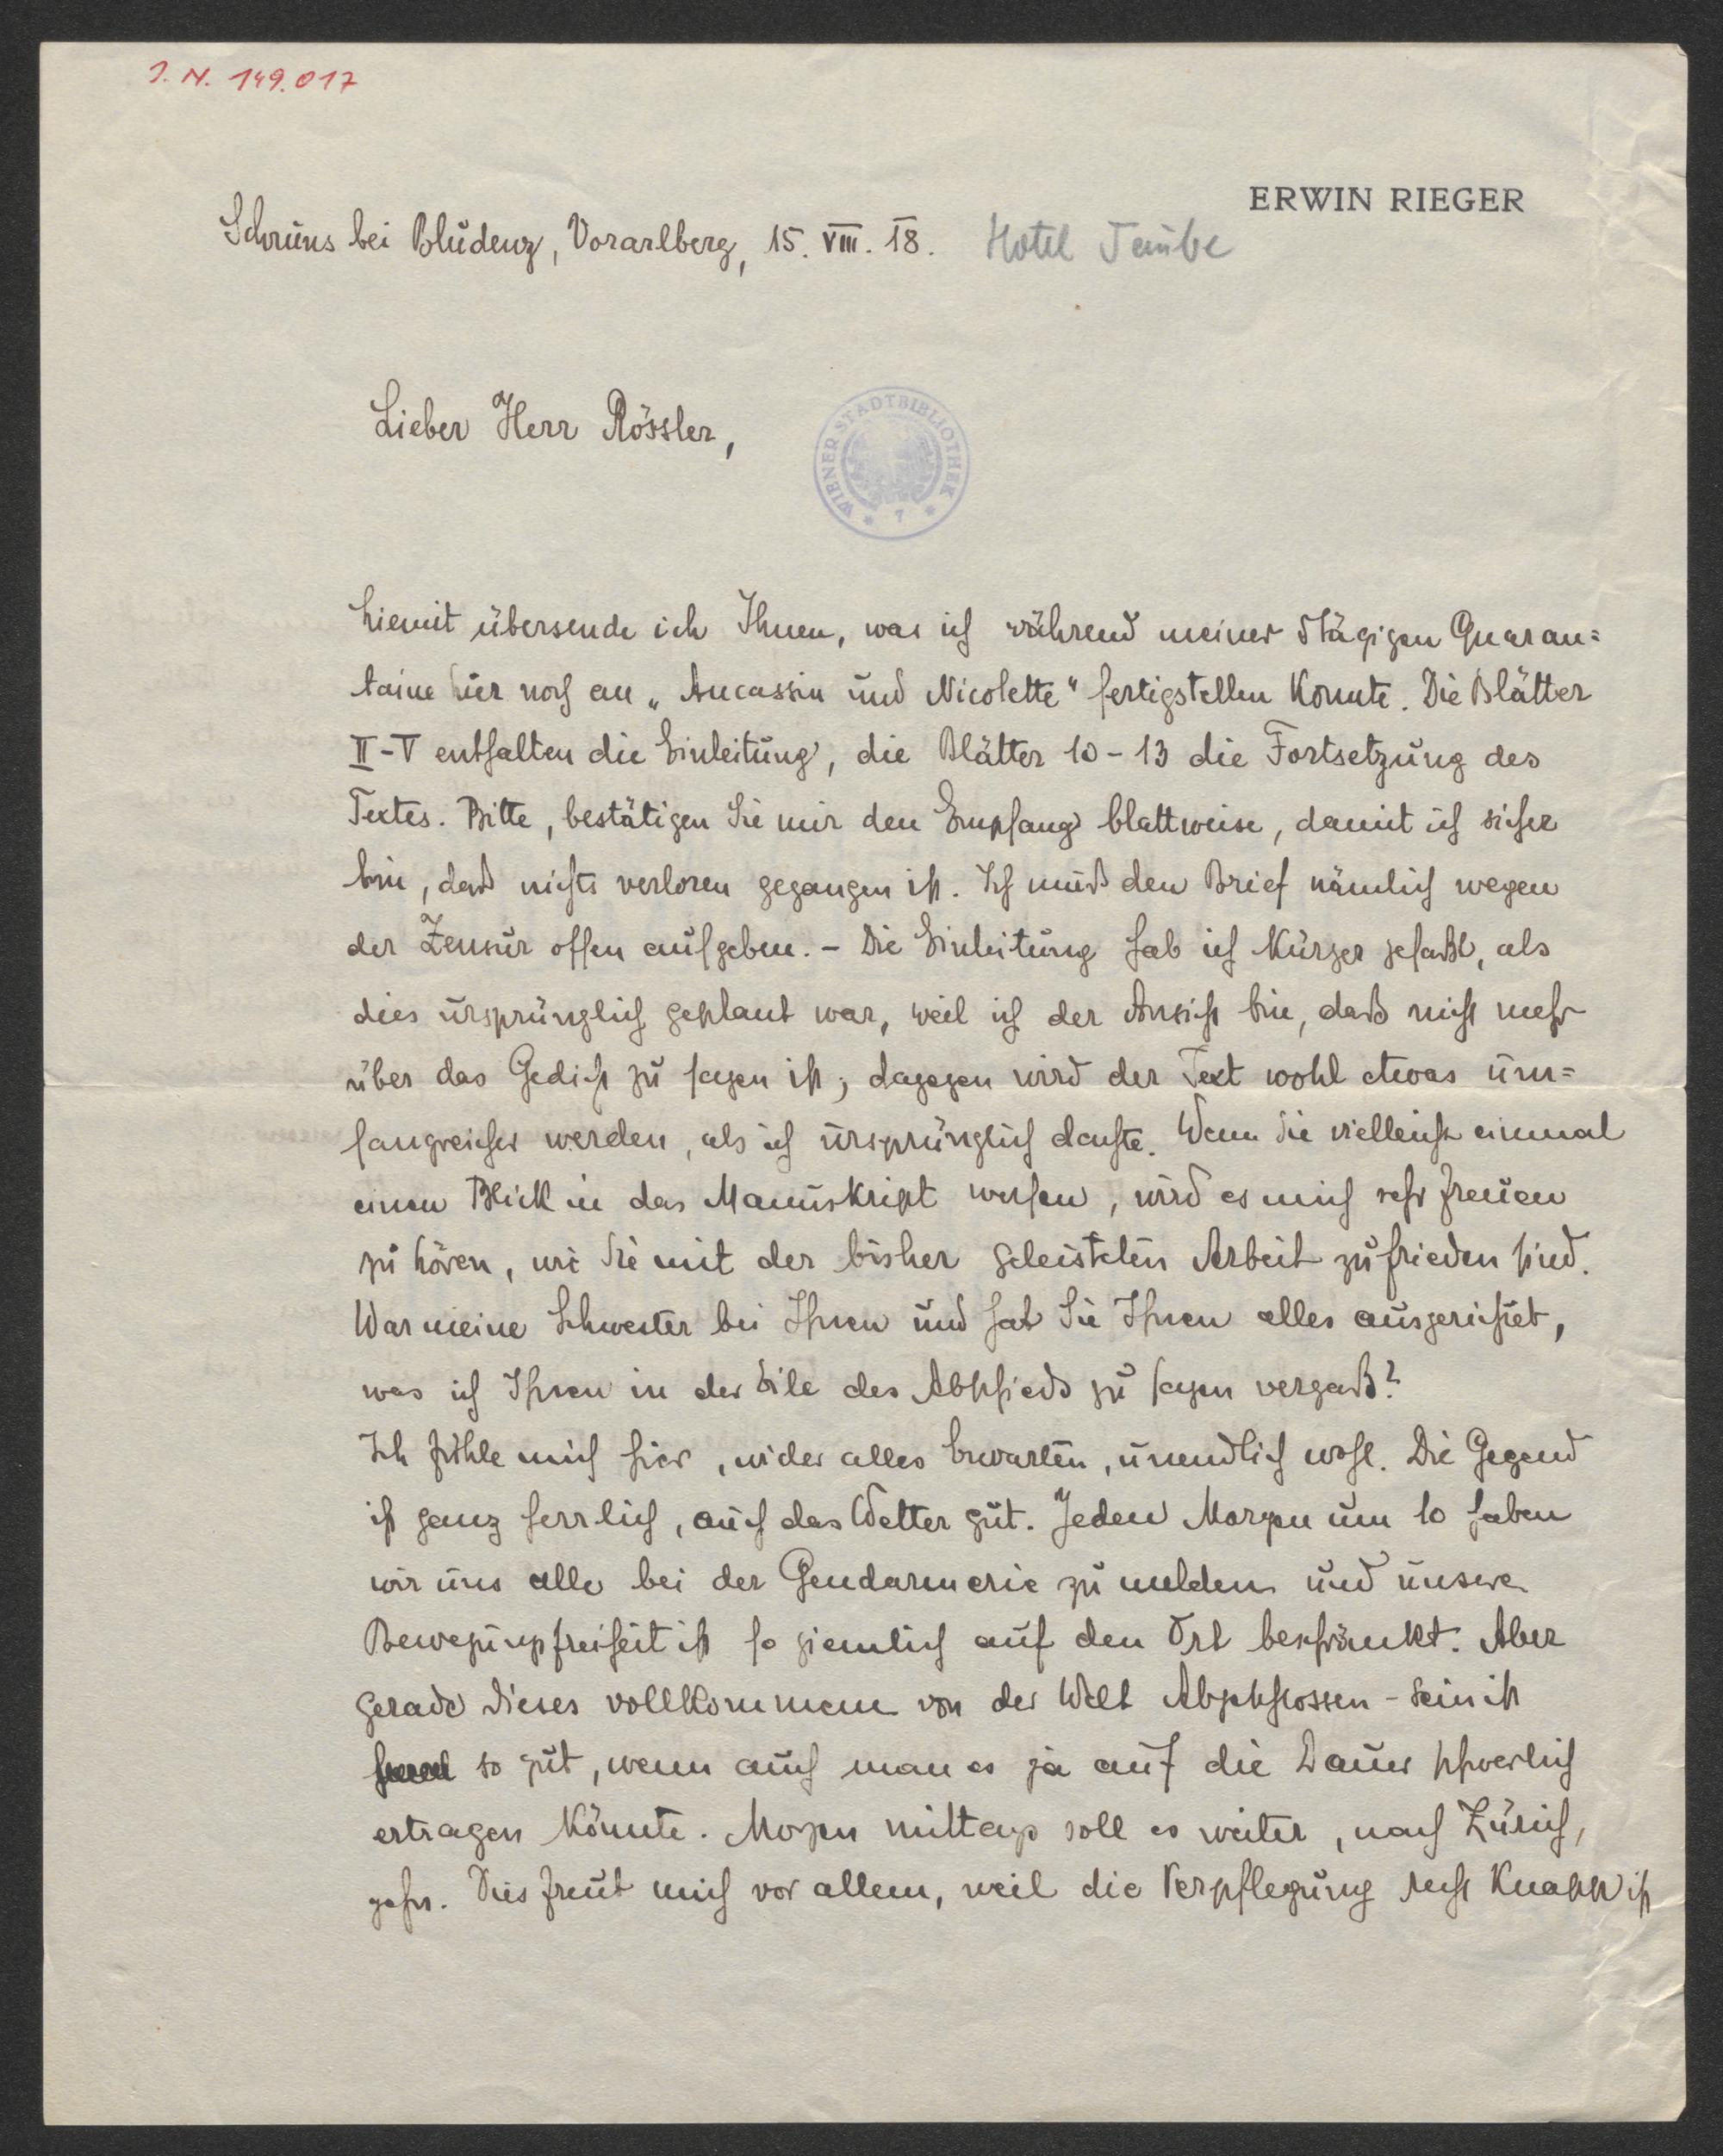 J. N. 149.017
ERWIN RIEGER
Schruns bei Bludenz, Vorarlberg, 15. VIII. 18. Hotel Taube
Lieber Herr Rössler,
WIENER STADTBIBLIOTHEK * 7 *
hiemit übersende ich Ihnen, was ich während meiner 5tägigen Quaran=
taine hier noch an „Aucassin und Nicolette“ fertigstellen konnte. Die Blätter
II-V enthalten die Einleitung, die Blätter 10-13 die Fortsetzung des
Textes. Bitte, bestätigen Sie mir den Empfang blattweise, damit ich sicher
bin, daß nichts verloren gegangen ist. Ich muß den Brief nämlich wegen
der Zensur offen aufgeben. – Die Einleitung hab ich kürzer gefaßt, als
dies ursprünglich geplant war, weil ich der Ansicht bin, daß nicht mehr
über das Gedicht zu sagen ist; dagegen wird der Text wohl etwas um=
fangreicher werden, als ich ursprünglich dachte. Wenn Sie vielleicht einmal
einen Blick in das Manuskript werfen, wird es mich sehr freuen
zu hören, wie Sie mit der bisher geleisteten Arbeit zufrieden sind.
War meine Schwester bei Ihnen und hat Sie Ihnen alles ausgerichtet,
was ich Ihnen in der Eile des Abschieds zu sagen vergaß?
Ich fühle mich hier, wider alles Erwarten, unendlich wohl. Die Gegend
ist ganz herrlich, auch das Wetter gut. Jeden Morgen um 10 haben
wir uns alle bei der Gendarmerie zu melden und unsere
Bewegungsfreiheit ist so ziemlich auf den Ort beschränkt. Aber
gerade dieses vollkommene von der Welt Abgeschlossen-Sein ist
so gut, wenn auch man es ja auf die Dauer schwerlich
ertragen könnte. Morgen mittags soll es weiter, nach Zürich,
gehn. Dies freut mich vor allem, weil die Verpflegung recht knapp ist